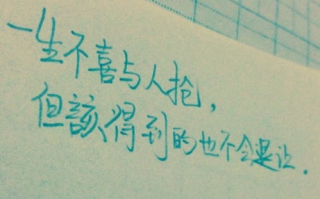 一生不喜与人抢，
但該得到的也不会是让.